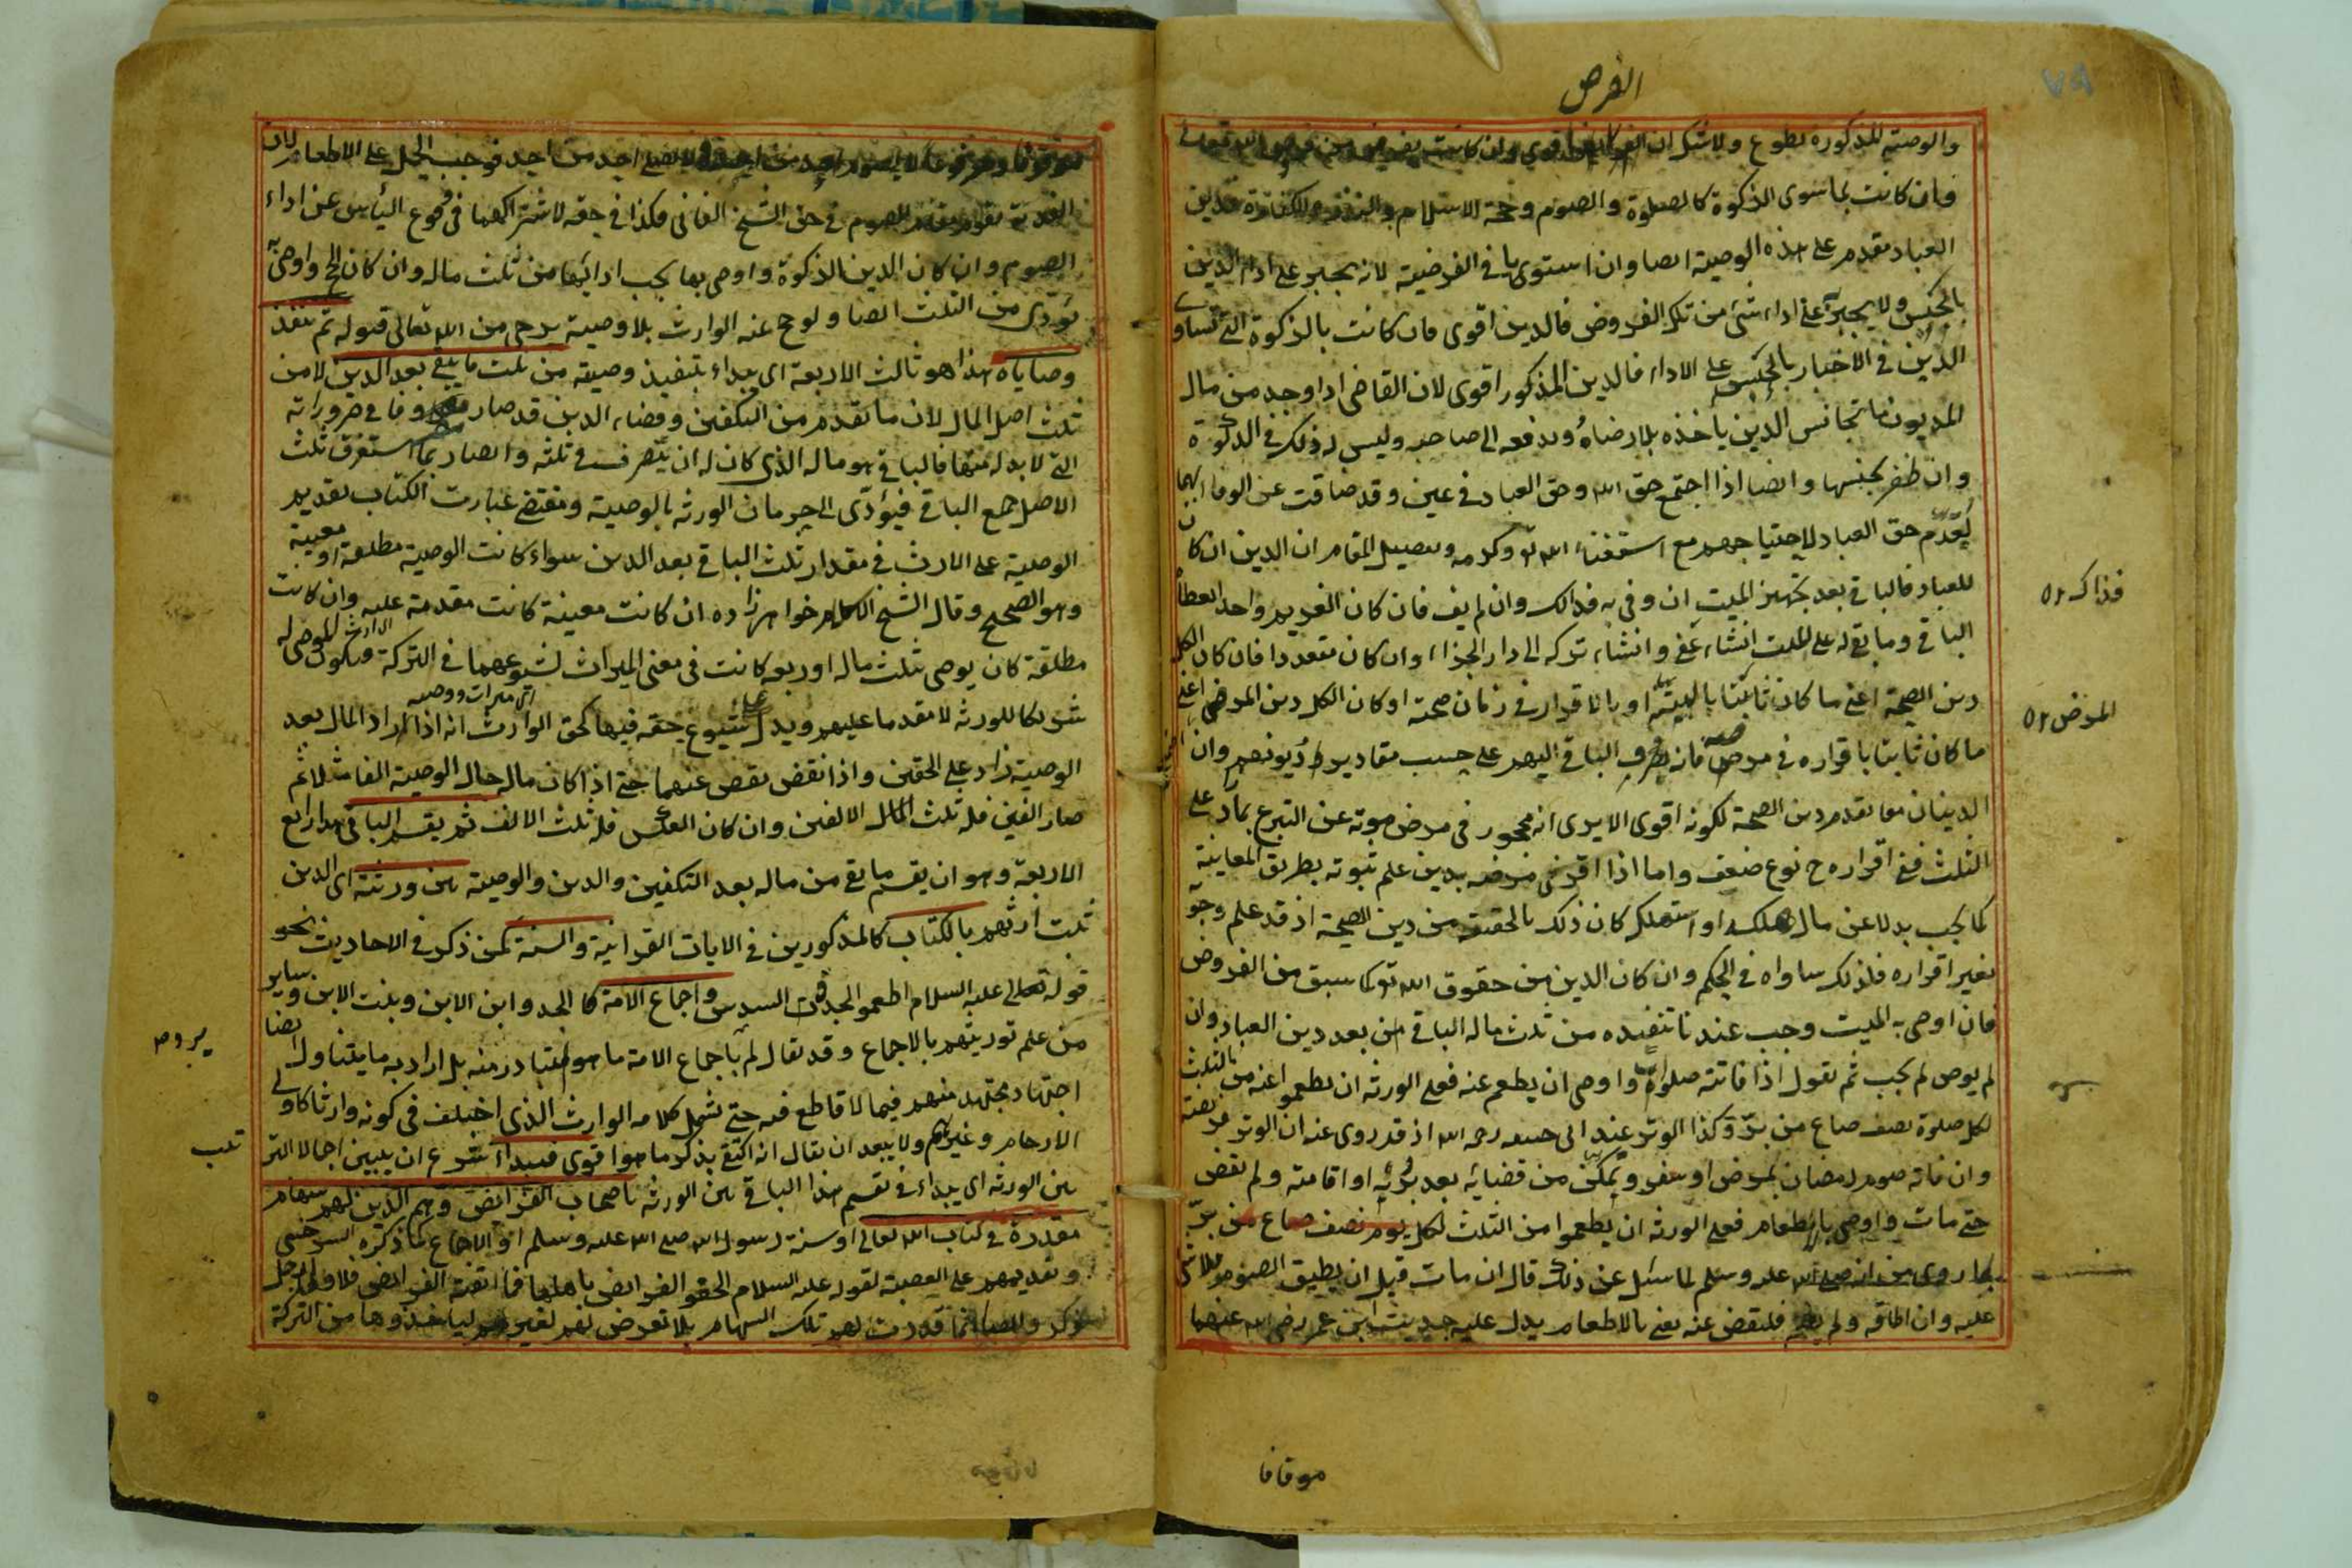 الفرض
والوصية المذكورة تطوع ولا شك ان الفرض اقوى وان كانت بفرض من فروض الله تعالى
وان كانت بما سوى الزكوة كالصلوة والصوم وحجة الاسلام والنذر والكفارة فدين
العباد مقدم على هذه الوصية ايضا وان استويا في الفرضية لانه يجبر على اداء الدين
بالحبس ولا يجبر على اداء شئ من تلك الفروض فالدين اقوى فان كانت بالزكوة التي تساوى
الدين في الاجبار بالحبس على الاداء فالدين المذكور اقوى لان القاضى اذا وجد من مال
المديون ما تجانس الدين ياخذه بلا رضاه ويدفعه الى صاحبه وليس له ذلك في الزكوة
وان ظفر بجنسها وايضا اذا اجتمع حق الله وحق العباد في عين وقد ضاقت عن الوفاء بهما
يقدم حق العباد لاحتياجهم مع استغناء الله تع وكرمه وتفصيل المقام ان الدين ان كان
للعباد فالباقي بعد تجهيز الميت ان وفى به فذاك وان لم يف فان كان الغريم واحدا يعطاه
الباقي وما بقى له على الميت انشاء عفى وانشاء تركه الى دار الجزاء وان كان متعددا فان كان الكل
دين الصحة اعنى ما كان ثابتا بالبينة او بالاقرار في زمان صحته او كان الكل دين المرض اعنى
ما كان ثابتا باقراره في مرضه فانه يصرف الباقي اليهم على حسب مقادير ديونهم وان
الدينان معا يقدم دين الصحة لكونه اقوى الا يرى انه محجور في مرض موته عن التبرع بما زاد على
الثلث ففي اقراره ح نوع ضعف واما اذا اقر في مرضه بدين علم ثبوته بطريق المعاينة
كما يجب بدلا عن مال ملكه او استهلكه كان ذلك بالحقيقة من دين الصحة اذ قد علم وجوبه
بغير اقراره فلذلك ساواه في الحكم وان كان الدين من حقوق الله تع كما سبق من الفروض
فان اوصى به الميت وجب عندنا تنفيذه من ثلث ماله الباقي من بعد دين العباد وان
لم يوص لم يجب ثم نقول اذا فاتته صلوة واوصى ان يطعم عنه فعلى الورثة ان يطعموا عنه من الثلث
لكل صلوة نصف صاع من بر وكذا الوتر عند ابى حنيفة رحمه الله اذ قد روى عنه ان الوتر فريضة
وان فاته صوم رمضان لمرض او سفر وتمكن من قضائه بعد برئه او اقامته ولم يقض
حتى مات واوصى بالاطعام فعلى الورثة ان يطعموا من الثلث لكل يوم نصف صاع من بر
كما روى من انه صلى الله عليه وسلم لما سئل عن ذلك قال ان مات قبل ان يطيق الصوم فلا شئ
عليه وان اطاقه ولم يصم فليقض عنه يعنى بالاطعام يدل عليه حديث ابن عمر رضى الله عنهما
فذاك ٥١
المرض ٥١
موقوفا
موقوفا ومرفوعا لا يصوم احد عن احد ولا يصلى احد عن احد فوجب الحمل على الاطعام لان
الفدية تقوم مقام الصوم في حق الشيخ الفانى فكذا في حقه لاشتراكهما في وقوع اليأس عن اداء
الصوم وان كان الدين الزكوة واوصى بها يجب ادائها من ثلث ماله وان كان الحج واوصى به
يؤدى من الثلث ايضا ولو حج عنه الوارث بلا وصية يرجى من الله تعالى قبوله ثم تنفذ
وصاياه هذا هو ثالث الاربعة اى يبداء بتنفيذ وصيته من ثلث ما يبقى بعد الدين لا من
ثلث اصل المال لان ما تقدم من التكفين وقضاء الدين قد صار مصروفا في ضروراته
التى لا بد له منها فالباقي هو ماله الذى كان له ان يتصرف في ثلثه وايضا ربما استغرق ثلث
الاصل جميع الباقي فيؤدى الى حرمان الورثة بالوصية ومقتضى عبارت الكتاب تقديم
الوصية على الارث في مقدار ثلث الباقي بعد الدين سواء كانت الوصية مطلقة او معينة
وهو الصحيح وقال الشيخ الامام خواهر زاده ان كانت معينة كانت مقدمة عليه وان كانت
مطلقة كان يوصى بثلث ماله او ربعه كانت في معنى الميراث لشيوعهما في التركة ويكون الموصى له
شريكا للورثة لا مقدما عليهم ويدل على شيوع حقه فيها كحق الوارث انه اذا زاد المال بعد
الوصية زاد على الحقين واذا نقص نقص عنهما حتى اذا كان ماله حال الوصية الفا مثلا ثم
صار الفين فله ثلث الالفين وان كان العكس فله ثلث الالف ثم يقسم الباقى هذا رابع
الاربعة وهو ان يقسم ما بقى من ماله بعد التكفين والدين والوصية بين ورثته اى الذين
ثبت ارثهم بالكتاب كالمذكورين في الايات القرانية والسنة كمن ذكر في الاحاديث نحو
قوله عليه السلام اطعموا الجدات السدس واجماع الامة كالجد وابن الابن وبنت الابن وساير
من علم توريثهم بالاجماع وقد يقال لم باجماع الامة ما هو المتبادر منه بل اراد به ما يتناول ايضا
اجتهاد مجتهد منهم فيما لا قاطع فيه حتى يشمل كلامه الوارث الذى اختلف في كونه وارثا كاولى
الارحام وغيرهم ولا يبعد ان يقال انه اكتفى بذكر ما هو اقوى فيبدا شرع ان يبين اجمالا
بين الورثة اى يبداء في تقسيم هذا الباقي بين الورثة باصحاب الفرائض وهم الذين لهم سهام
مقدرة في كتاب الله تعالى او سنة رسول الله صلى الله عليه وسلم او الاجماع كما ذكره السرخسى
وتقديمهم على العصبة لقوله عليه السلام الحقوا الفرايض باهلها فما ابقته الفرايض فلاولى رجل
ذكر وايضا انما قدرت لهم تلك السهام بلا تعرض لهم لغيرهم لياخذوها من التركة